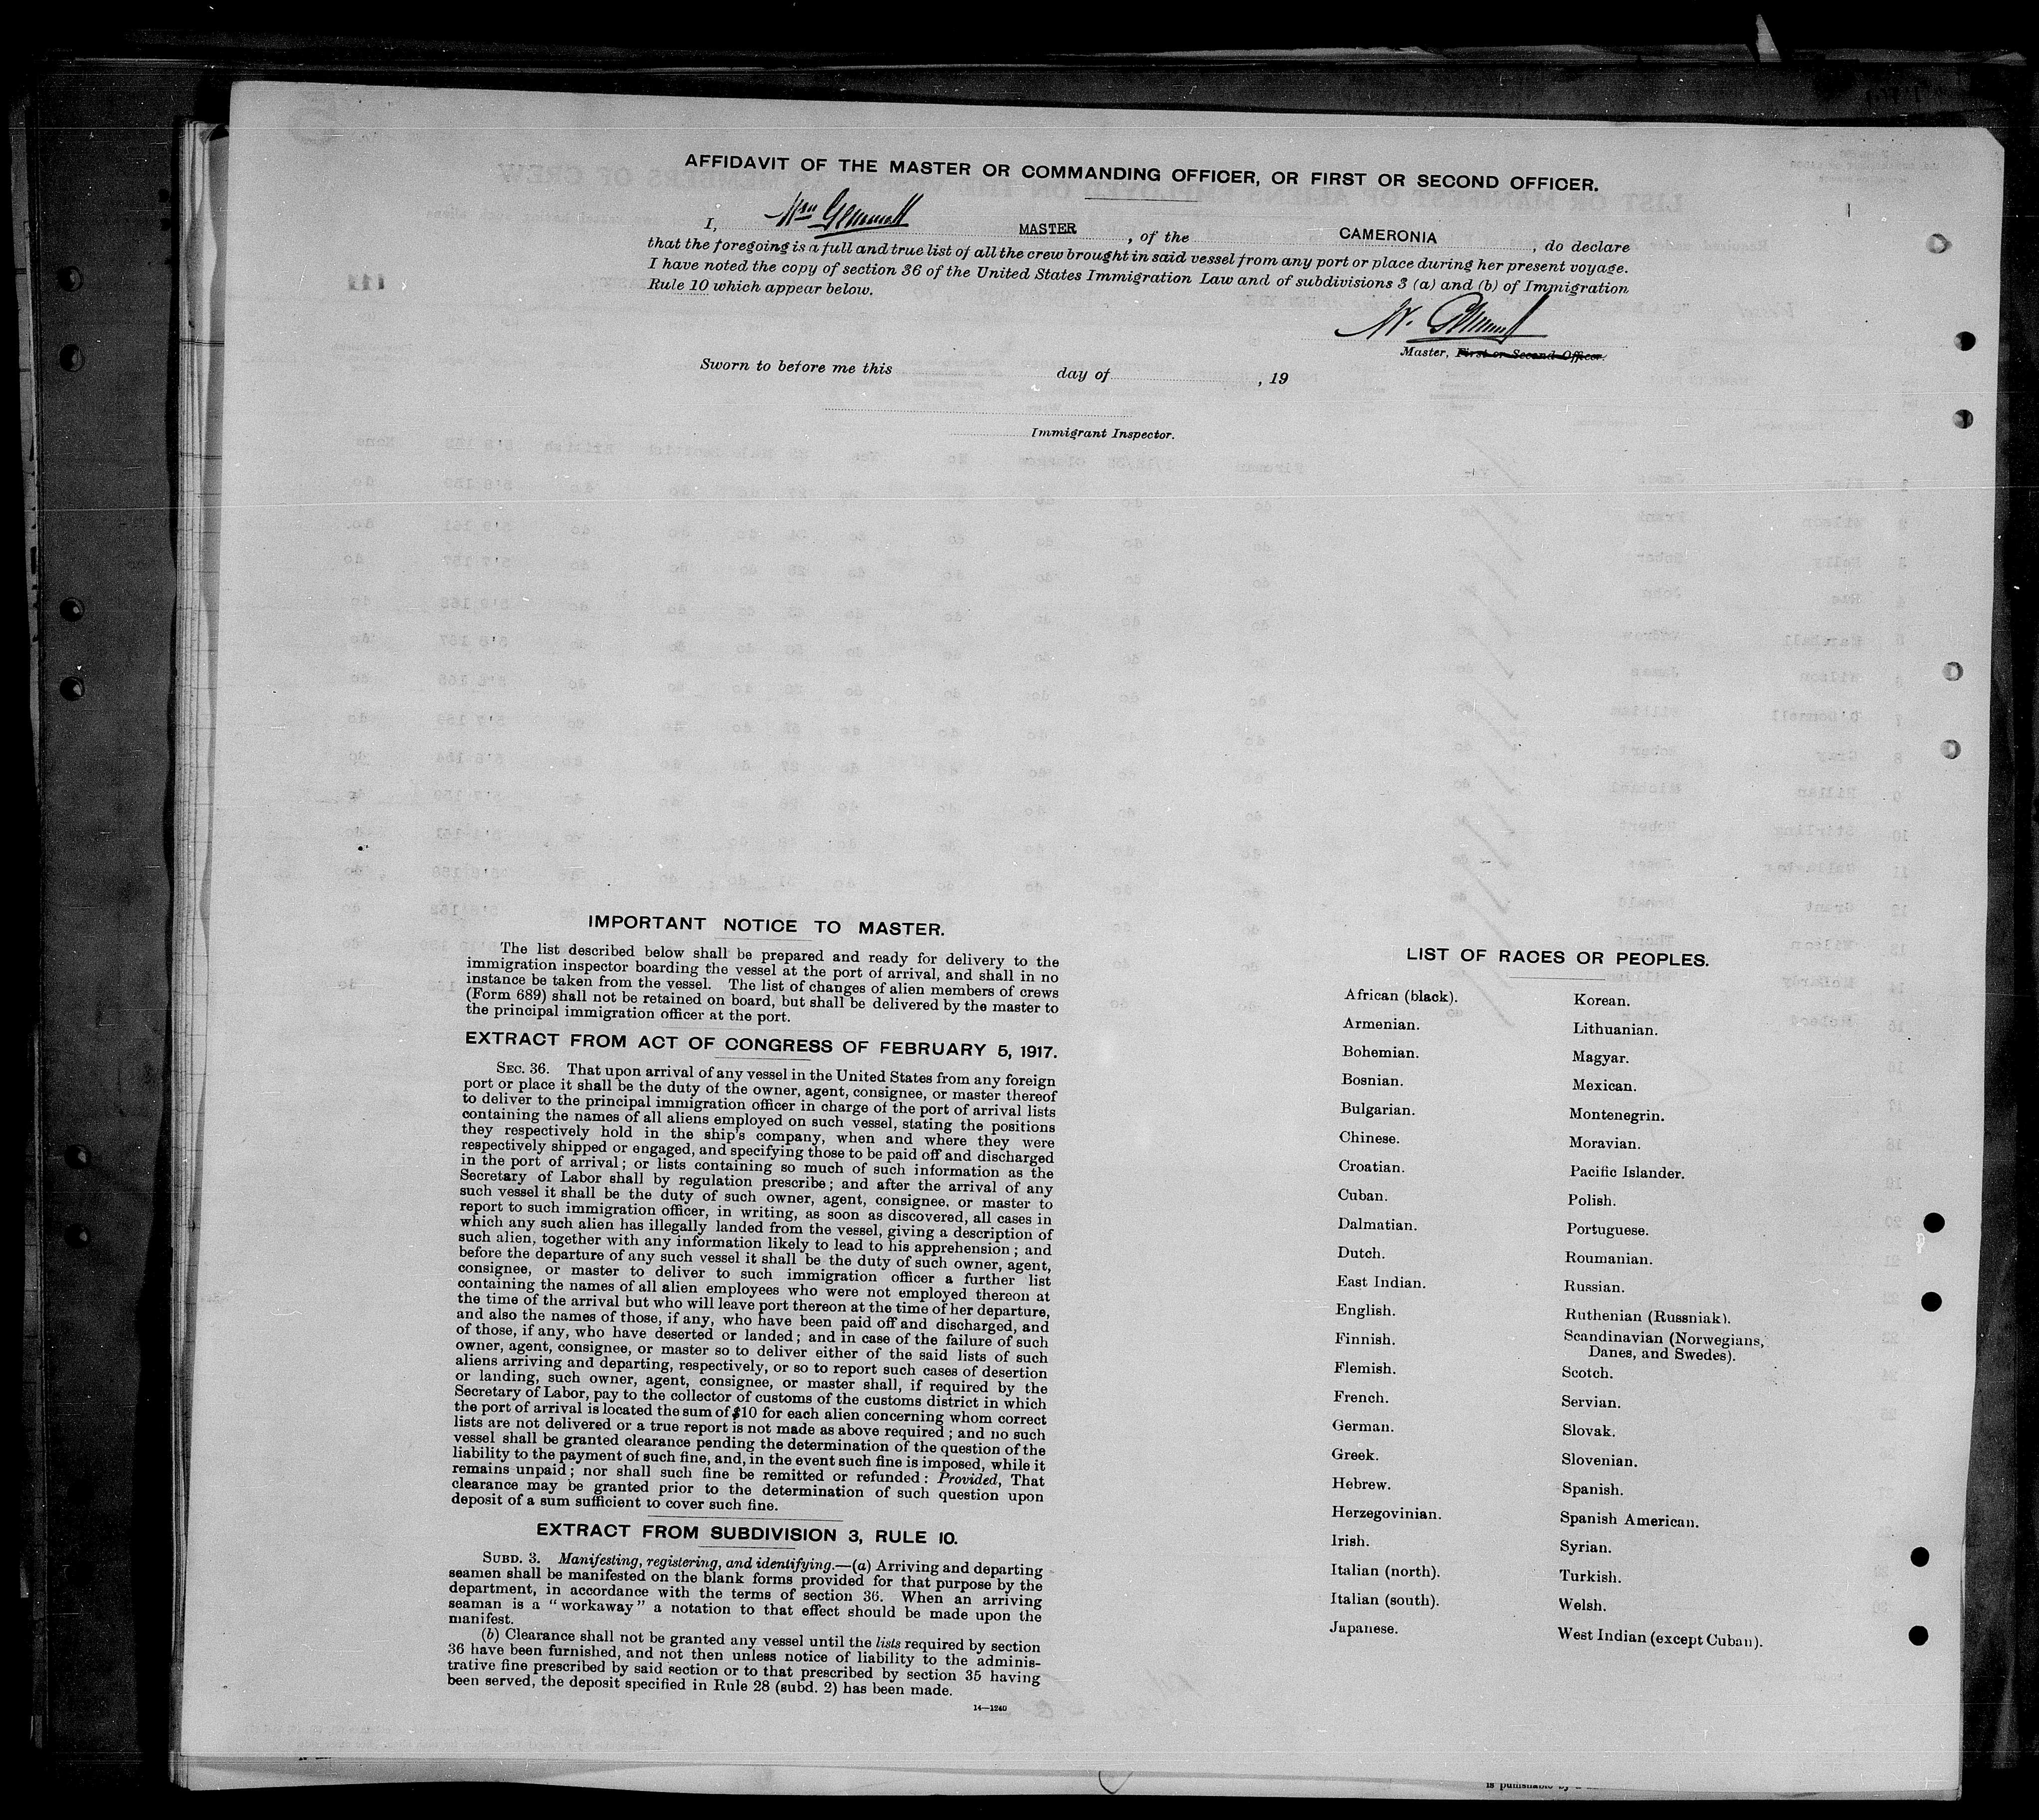 AFFIDAVIT OF THE MASTER OR COMMANDING OFFICER, OR FIRST OR SECOND OFFICER.
I, Wm Gemmell MASTER, of the CAMERONIA, do declare
that the foregoing is a full and true list of all the crew brought in said vessel from any port or place during her present voyage.
I have noted the copy of section 36 of the United States Immigration Law and of subdivisions 3 (a) and (b) of Immigration
Rule 10 which appear below.
W. Gemmell
Master, First or Second Officer.
Sworn to before me this day of , 19
Immigrant Inspector.
IMPORTANT NOTICE TO MASTER.
The list described below shall be prepared and ready for delivery to the
immigration inspector boarding the vessel at the port of arrival, and shall in no
instance be taken from the vessel. The list of changes of alien members of crews
(Form 689) shall not be retained on board, but shall be delivered by the master to
the principal immigration officer at the port.
EXTRACT FROM ACT OF CONGRESS OF FEBRUARY 5, 1917.
SEC. 36. That upon arrival of any vessel in the United States from any foreign
port or place it shall be the duty of the owner, agent, consignee, or master thereof
to deliver to the principal immigration officer in charge of the port of arrival lists
containing the names of all aliens employed on such vessel, stating the positions
they respectively hold in the ship's company, when and where they were
respectively shipped or engaged, and specifying those to be paid off and discharged
in the port of arrival; or lists containing so much of such information as the
Secretary of Labor shall by regulation prescribe; and after the arrival of any
such vessel it shall be the duty of such owner, agent, consignee, or master to
report to such immigration officer, in writing, as soon as discovered, all cases in
which any such alien has illegally landed from the vessel, giving a description of
such alien, together with any information likely to lead to his apprehension; and
before the departure of any such vessel it shall be the duty of such owner, agent,
consignee, or master to deliver to such immigration officer a further list
containing the names of all alien employees who were not employed thereon at
the time of the arrival but who will leave port thereon at the time of her departure,
and also the names of those, if any, who have been paid off and discharged, and
of those, if any, who have deserted or landed; and in case of the failure of such
owner, agent, consignee, or master so to deliver either of the said lists of such
aliens arriving and departing, respectively, or so to report such cases of desertion
or landing, such owner, agent, consignee, or master shall, if required by the
Secretary of Labor, pay to the collector of customs of the customs district in which
the port of arrival is located the sum of $10 for each alien concerning whom correct
lists are not delivered or a true report is not made as above required; and no such
vessel shall be granted clearance pending the determination of the question of the
liability to the payment of such fine, and, in the event such fine is imposed, while it
remains unpaid; nor shall such fine be remitted or refunded: Provided, That
clearance may be granted prior to the determination of such question upon
deposit of a sum sufficient to cover such fine.
EXTRACT FROM SUBDIVISION 3, RULE 10.
SUBD. 3. Manifesting, registering, and identifying.—(a) Arriving and departing
seamen shall be manifested on the blank forms provided for that purpose by the
department, in accordance with the terms of section 36. When an arriving
seaman is a "workaway" a notation to that effect should be made upon the
manifest.
(b) Clearance shall not be granted any vessel until the lists required by section
36 have been furnished, and not then unless notice of liability to the adminis-
trative fine prescribed by said section or to that prescribed by section 35 having
been served, the deposit specified in Rule 28 (subd. 2) has been made.
14—1240
LIST OF RACES OR PEOPLES.
African (black).
Armenian.
Bohemian.
Bosnian.
Bulgarian.
Chinese.
Croatian.
Cuban.
Dalmatian.
Dutch.
East Indian.
English.
Finnish.
Flemish.
French.
German.
Greek.
Hebrew.
Herzegovinian.
Irish.
Italian (north).
Italian (south).
Japanese.
Korean.
Lithuanian.
Magyar.
Mexican.
Montenegrin.
Moravian.
Pacific Islander.
Polish.
Portuguese.
Roumanian.
Russian.
Ruthenian (Russniak).
Scandinavian (Norwegians,
Danes, and Swedes).
Scotch.
Servian.
Slovak.
Slovenian.
Spanish.
Spanish American.
Syrian.
Turkish.
Welsh.
West Indian (except Cuban).
is punishable by